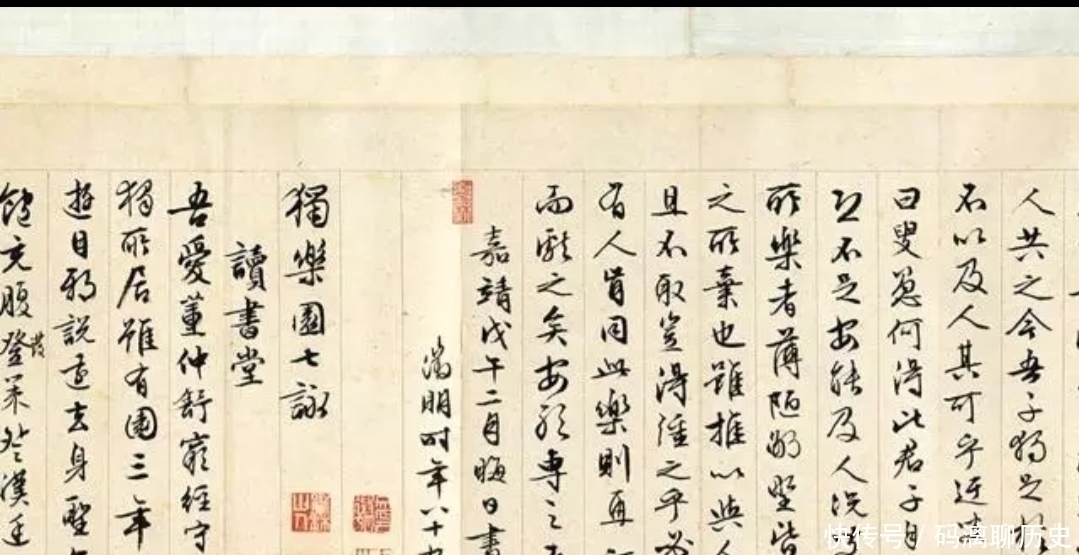 人共之今吾子獨足
不以及人其可乎迂
曰叟愚何得比君子自
恐不足安能及人況
所樂者薄陋鄙野皆
之所棄也雖推以與人
且不取豈得强之乎必
有人肯同此樂則再
而獻之矣安敢專之
嘉靖戊午二月晦日書
徵明時年八十九
獨樂園七詠
讀書堂
吾愛董仲舒窮經守
獨所居雖有園三年
遊目邪說遠去身聖言
飽充腹發策登漢廷
快传号 / 码漓聊历史